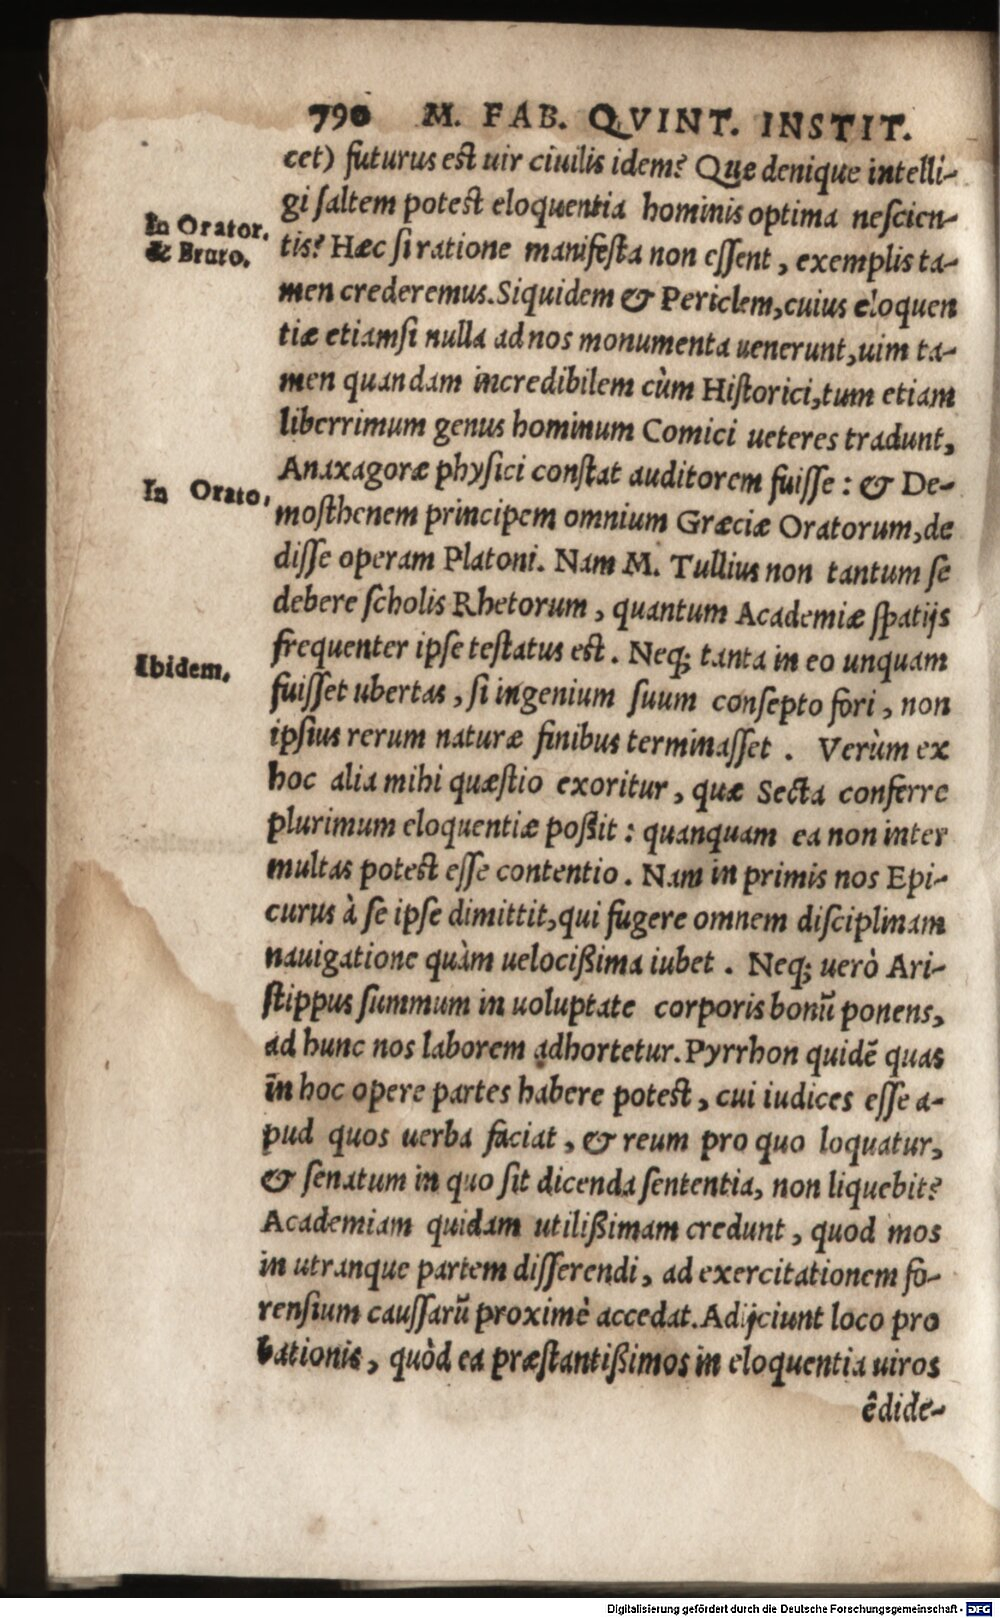 790 M. FAB. QVINT. INSTIT.
cet) futurus est uir ciuilis idem? Que denique intelli-
gi saltem potest eloquentia hominis optima nescien-
In Orator.
& Bruto.
tis? Hæc si ratione manifesta non essent, exemplis ta-
men crederemus. Siquidem & Periclem, cuius eloquen
tiæ etiamsi nulla ad nos monumenta uenerunt, uim ta-
men quandam incredibilem cùm Historici, tum etiam
liberrimum genus hominum Comici ueteres tradunt,
Anaxagoræ physici constat auditorem fuisse: & De-
In Orato.
mosthenem principem omnium Græciæ Oratorum, de
disse operam Platoni. Nam M. Tullius non tantum se
debere scholis Rhetorum, quantum Academiæ spatijs
frequenter ipse testatus est. Neq; tanta in eo unquam
Ibidem.
fuisset ubertas, si ingenium suum consepto fori, non
ipsius rerum naturæ finibus terminasset. Verùm ex
hoc alia mihi quæstio exoritur, quæ Secta conferre
plurimum eloquentiæ poßit: quanquam ea non inter
multas potest esse contentio. Nam in primis nos Epi-
curus à se ipse dimittit, qui fugere omnem disciplinam
nauigatione quàm uelocißima iubet. Neq; uerò Ari-
stippus summum in uoluptate corporis bonũ ponens,
ad hunc nos laborem adhortetur. Pyrrhon quidẽ quas
in hoc opere partes habere potest, cui iudices esse a-
pud quos uerba faciat, & reum pro quo loquatur,
& senatum in quo sit dicenda sententia, non liquebit?
Academiam quidam utilißimam credunt, quod mos
in utranque partem disserendi, ad exercitationem fo-
rensium caussarũ proximè accedat. Adijciunt loco pro
bationis, quòd ea præstantißimos in eloquentia uiros
êdide-
Digitalisierung gefördert durch die Deutsche Forschungsgemeinschaft - DFG